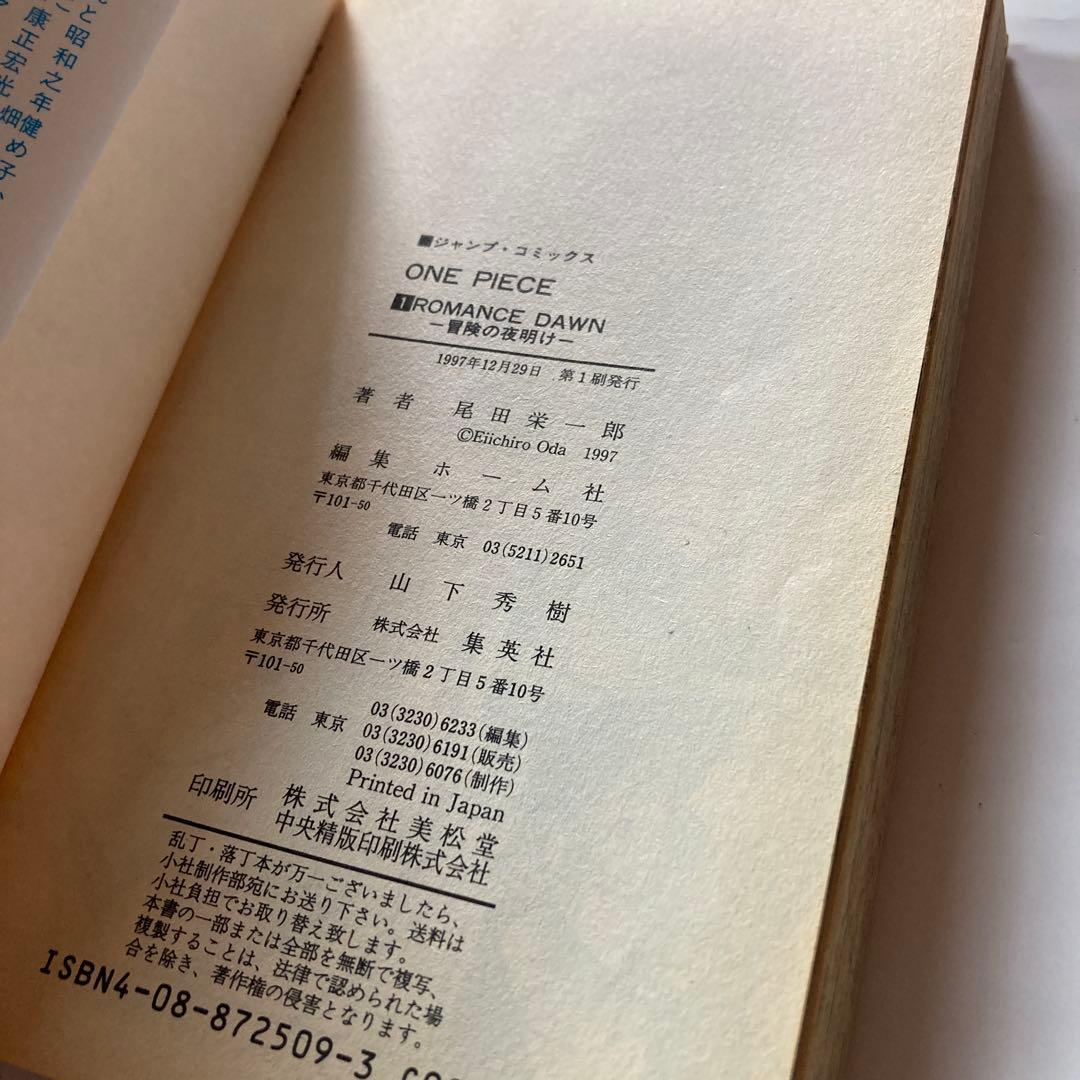 と昭和之年健め子、
康正宏光畑
■ジャンプ・コミックス
ONE PIECE
1 ROMANCE DAWN
―冒険の夜明け―
1997年12月29日 第1刷発行
著者 尾田栄一郎
©Eiichiro Oda 1997
編集 ホーム社
東京都千代田区一ツ橋2丁目5番10号
〒101-50
電話 東京 03(5211)2651
発行人 山下秀樹
発行所 株式会社 集英社
東京都千代田区一ツ橋2丁目5番10号
〒101-50
03(3230)6233(編集)
電話 東京 03(3230)6191(販売)
03(3230)6076(制作)
Printed in Japan
印刷所 株式会社美松堂
中央精版印刷株式会社
乱丁・落丁本が万一ございましたら、
小社制作部宛にお送り下さい。送料は
小社負担でお取り替え致します。
本書の一部または全部を無断で複写、
複製することは、法律で認められた場
合を除き、著作権の侵害となります。
ISBN4-08-872509-3